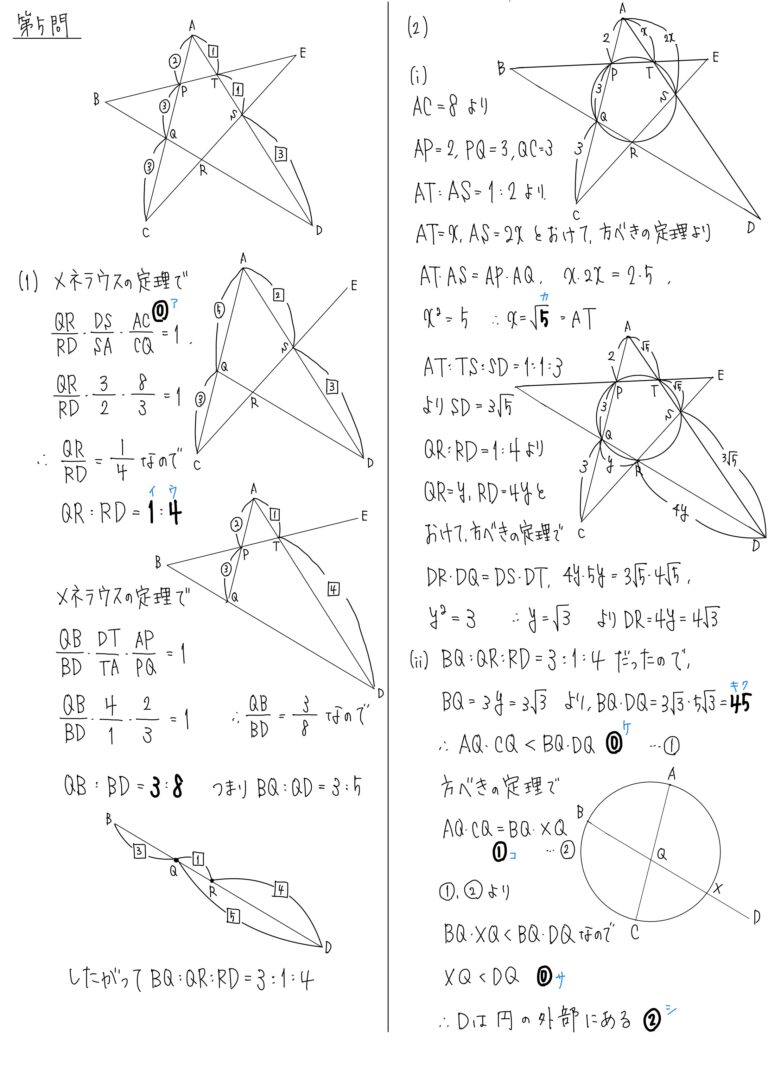 第5問
A
B
C
D
E
P
Q
R
S
T
② 1 ③ 1 ③ 3
(1) メネラウスの定理で
QR/RD・DS/SA・AC/CQ=1, ⓪ ア
QR/RD・3/2・8/3=1
∴ QR/RD=1/4 なので
イ ウ
QR:RD=1:4
A
E
S
Q
R
C
D
⑤ 2 ③ 3
メネラウスの定理で
QB/BD・DT/TA・AP/PQ=1
QB/BD・4/1・2/3=1 ∴QB/BD=3/8 なので
QB:BD=3:8 つまり BQ:QD=3:5
A
E
B
P
T
Q
D
② 1 ③ 4
B
Q
R
D
3 1 4 5
したがって BQ:QR:RD=3:1:4
(2)
(i)
AC=8 より
AP=2, PQ=3, QC=3
AT:AS=1:2 より
AT=x, AS=2x とおけて, 方べきの定理より
AT・AS=AP・AQ, x・2x=2・5,
カ
x²=5 ∴x=√5=AT
A
B
C
D
E
P
Q
R
S
T
2 x 2x 3 3
AT:TS:SD=1:1:3
より SD=3√5
QR:RD=1:4 より
QR=y, RD=4y と
おけて, 方べきの定理で
DR・DQ=DS・DT, 4y・5y=3√5・4√5,
y²=3 ∴y=√3 より DR=4y=4√3
A
E
P
T
S
Q
R
C
D
2 √5 √5 3 3 y 4y 3√5
(ii) BQ:QR:RD=3:1:4 だったので,
キク
BQ=3y=3√3 より, BQ・DQ=3√3・5√3=45
∴ AQ・CQ<BQ・DQ ⓪ ケ …①
方べきの定理で
AQ・CQ=BQ・XQ
① コ …②
①, ② より
BQ・XQ<BQ・DQ なので
XQ<DQ ⓪ サ
∴Dは円の外部にある ② シ
A
B
Q
X
C
D